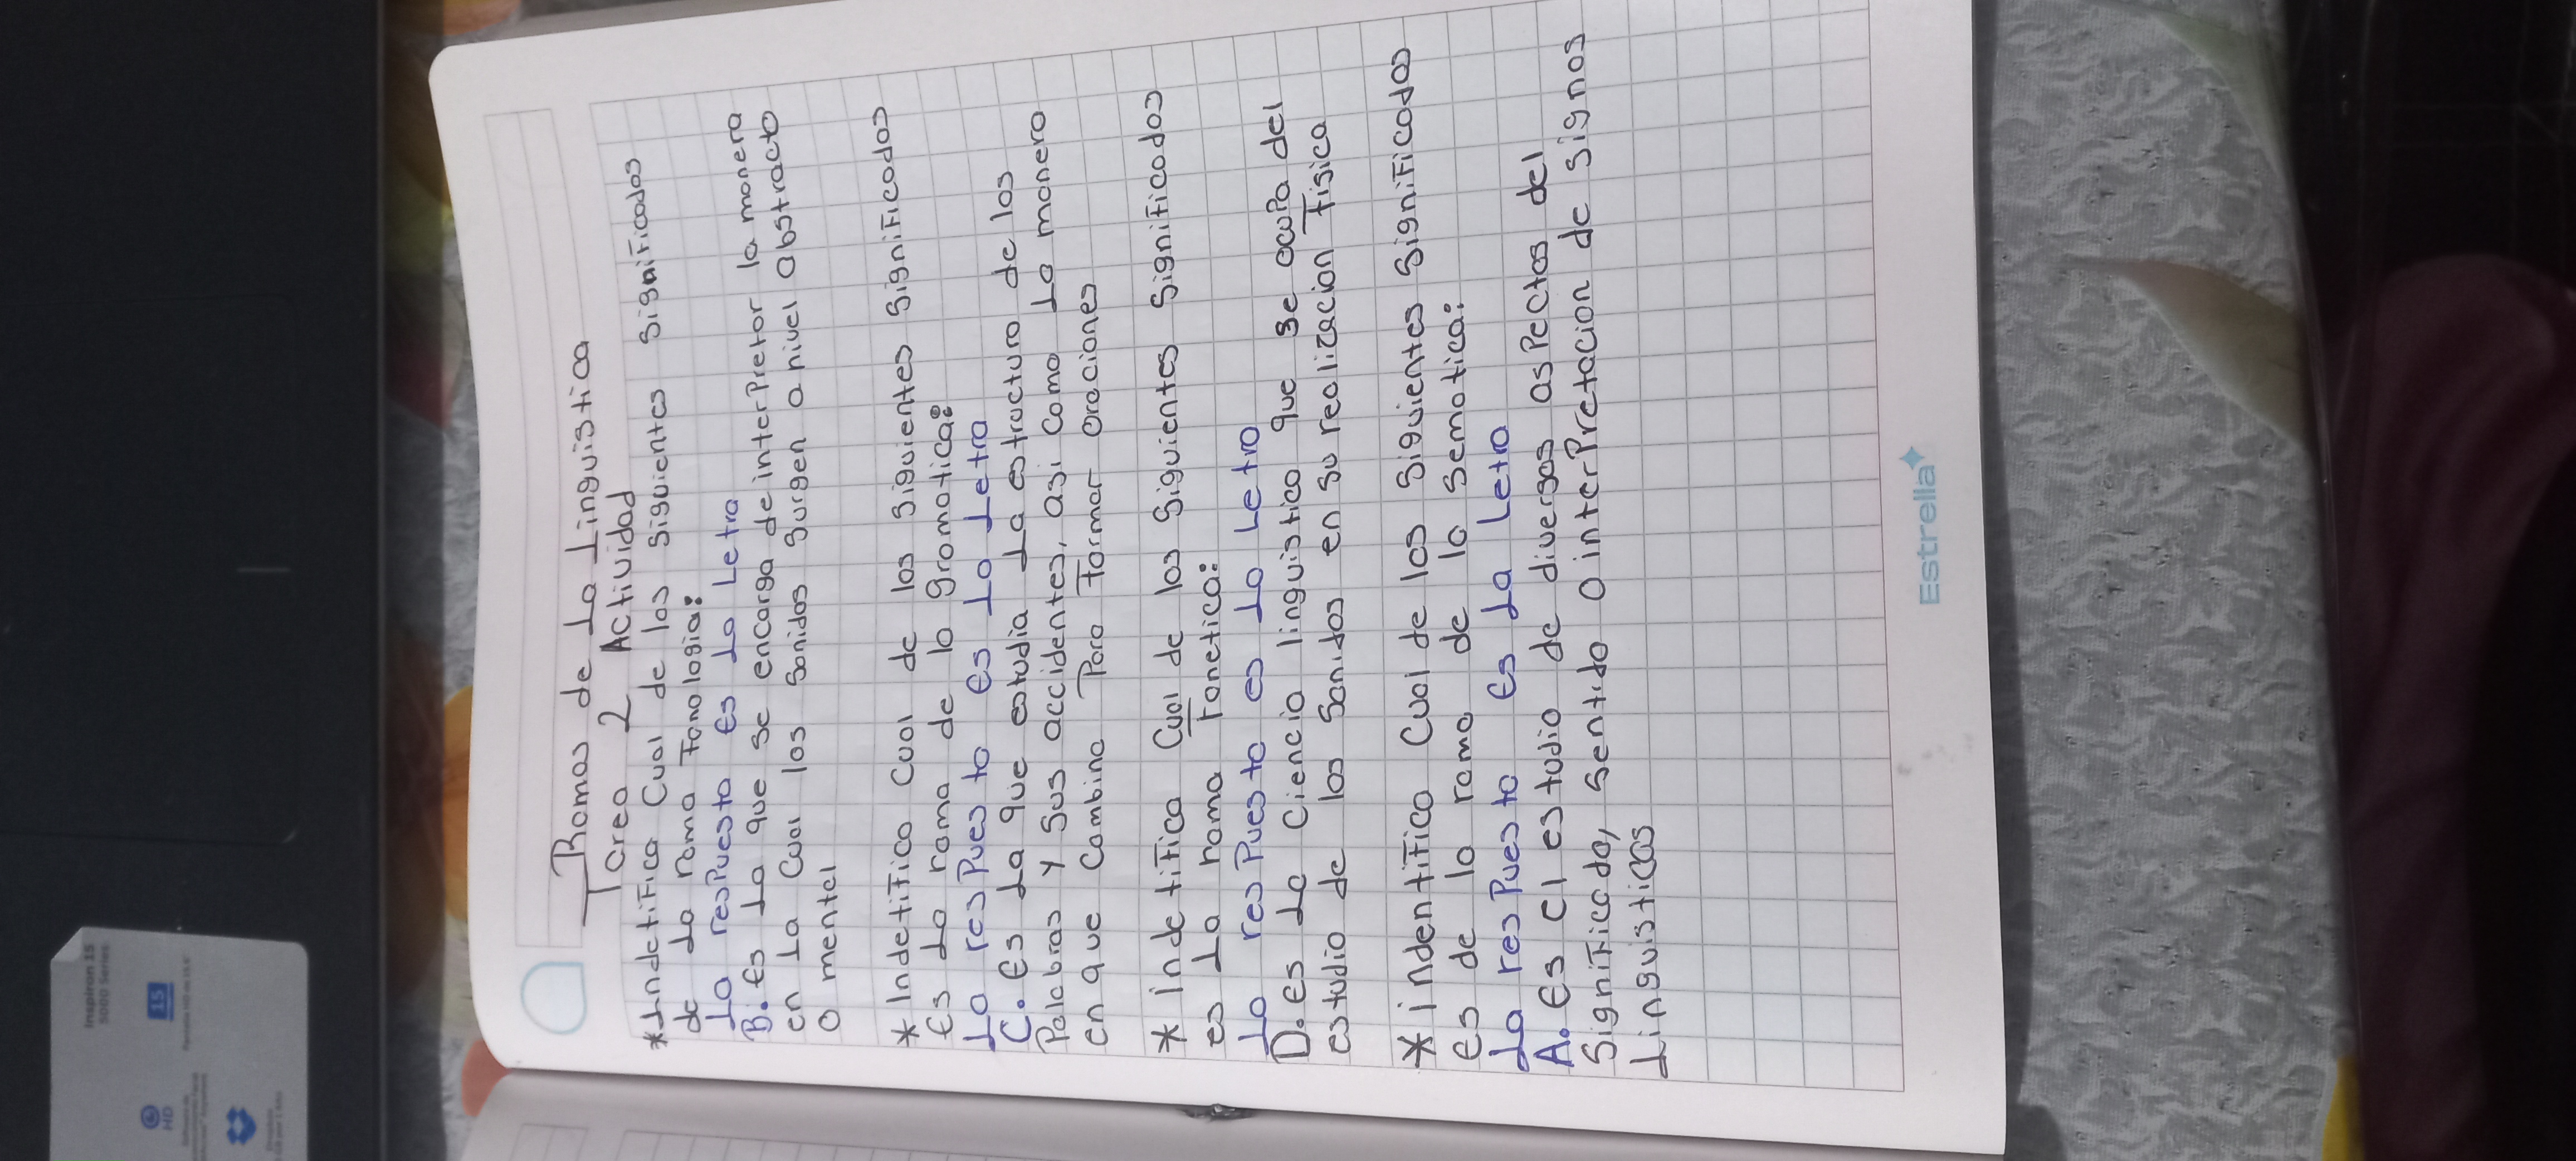 Inspiron 15
5000 Series
HD
15
Pantalla HD de 15.6"
Ramas de La Linguistica
Tarea 2 Actividad
*Indetifica Cual de los siguientes significados
de La rama Fonologia:
La respuesta es La Letra
B. Es La que se encarga de interpretar la manera
en La Cual los Sonidos Surgen a nivel abstracto
O mental
* Indetifica Cual de los siguientes significados
Es La rama de la gramatica:
La respuesta es La Letra
C. Es La que estudia La estructura de los
Palabras y Sus accidentes, asi Como La manera
en que Combina Para Formar oraciones
* indetifica Cual de los Siguientes Significados
es La rama Fonetica:
La respuesta es La Letra
D. es La Ciencia linguistica que se ocupa del
estudio de los Sonidos en su realizacion Fisica
* indentifica Cual de los Siguientes Significados
es de la rama de la Sematica:
La respuesta Es La Letra
A. Es el estudio de diversos aspectos del
Significado, Sentido O interpretacion de signos
Linguisticas
Estrella